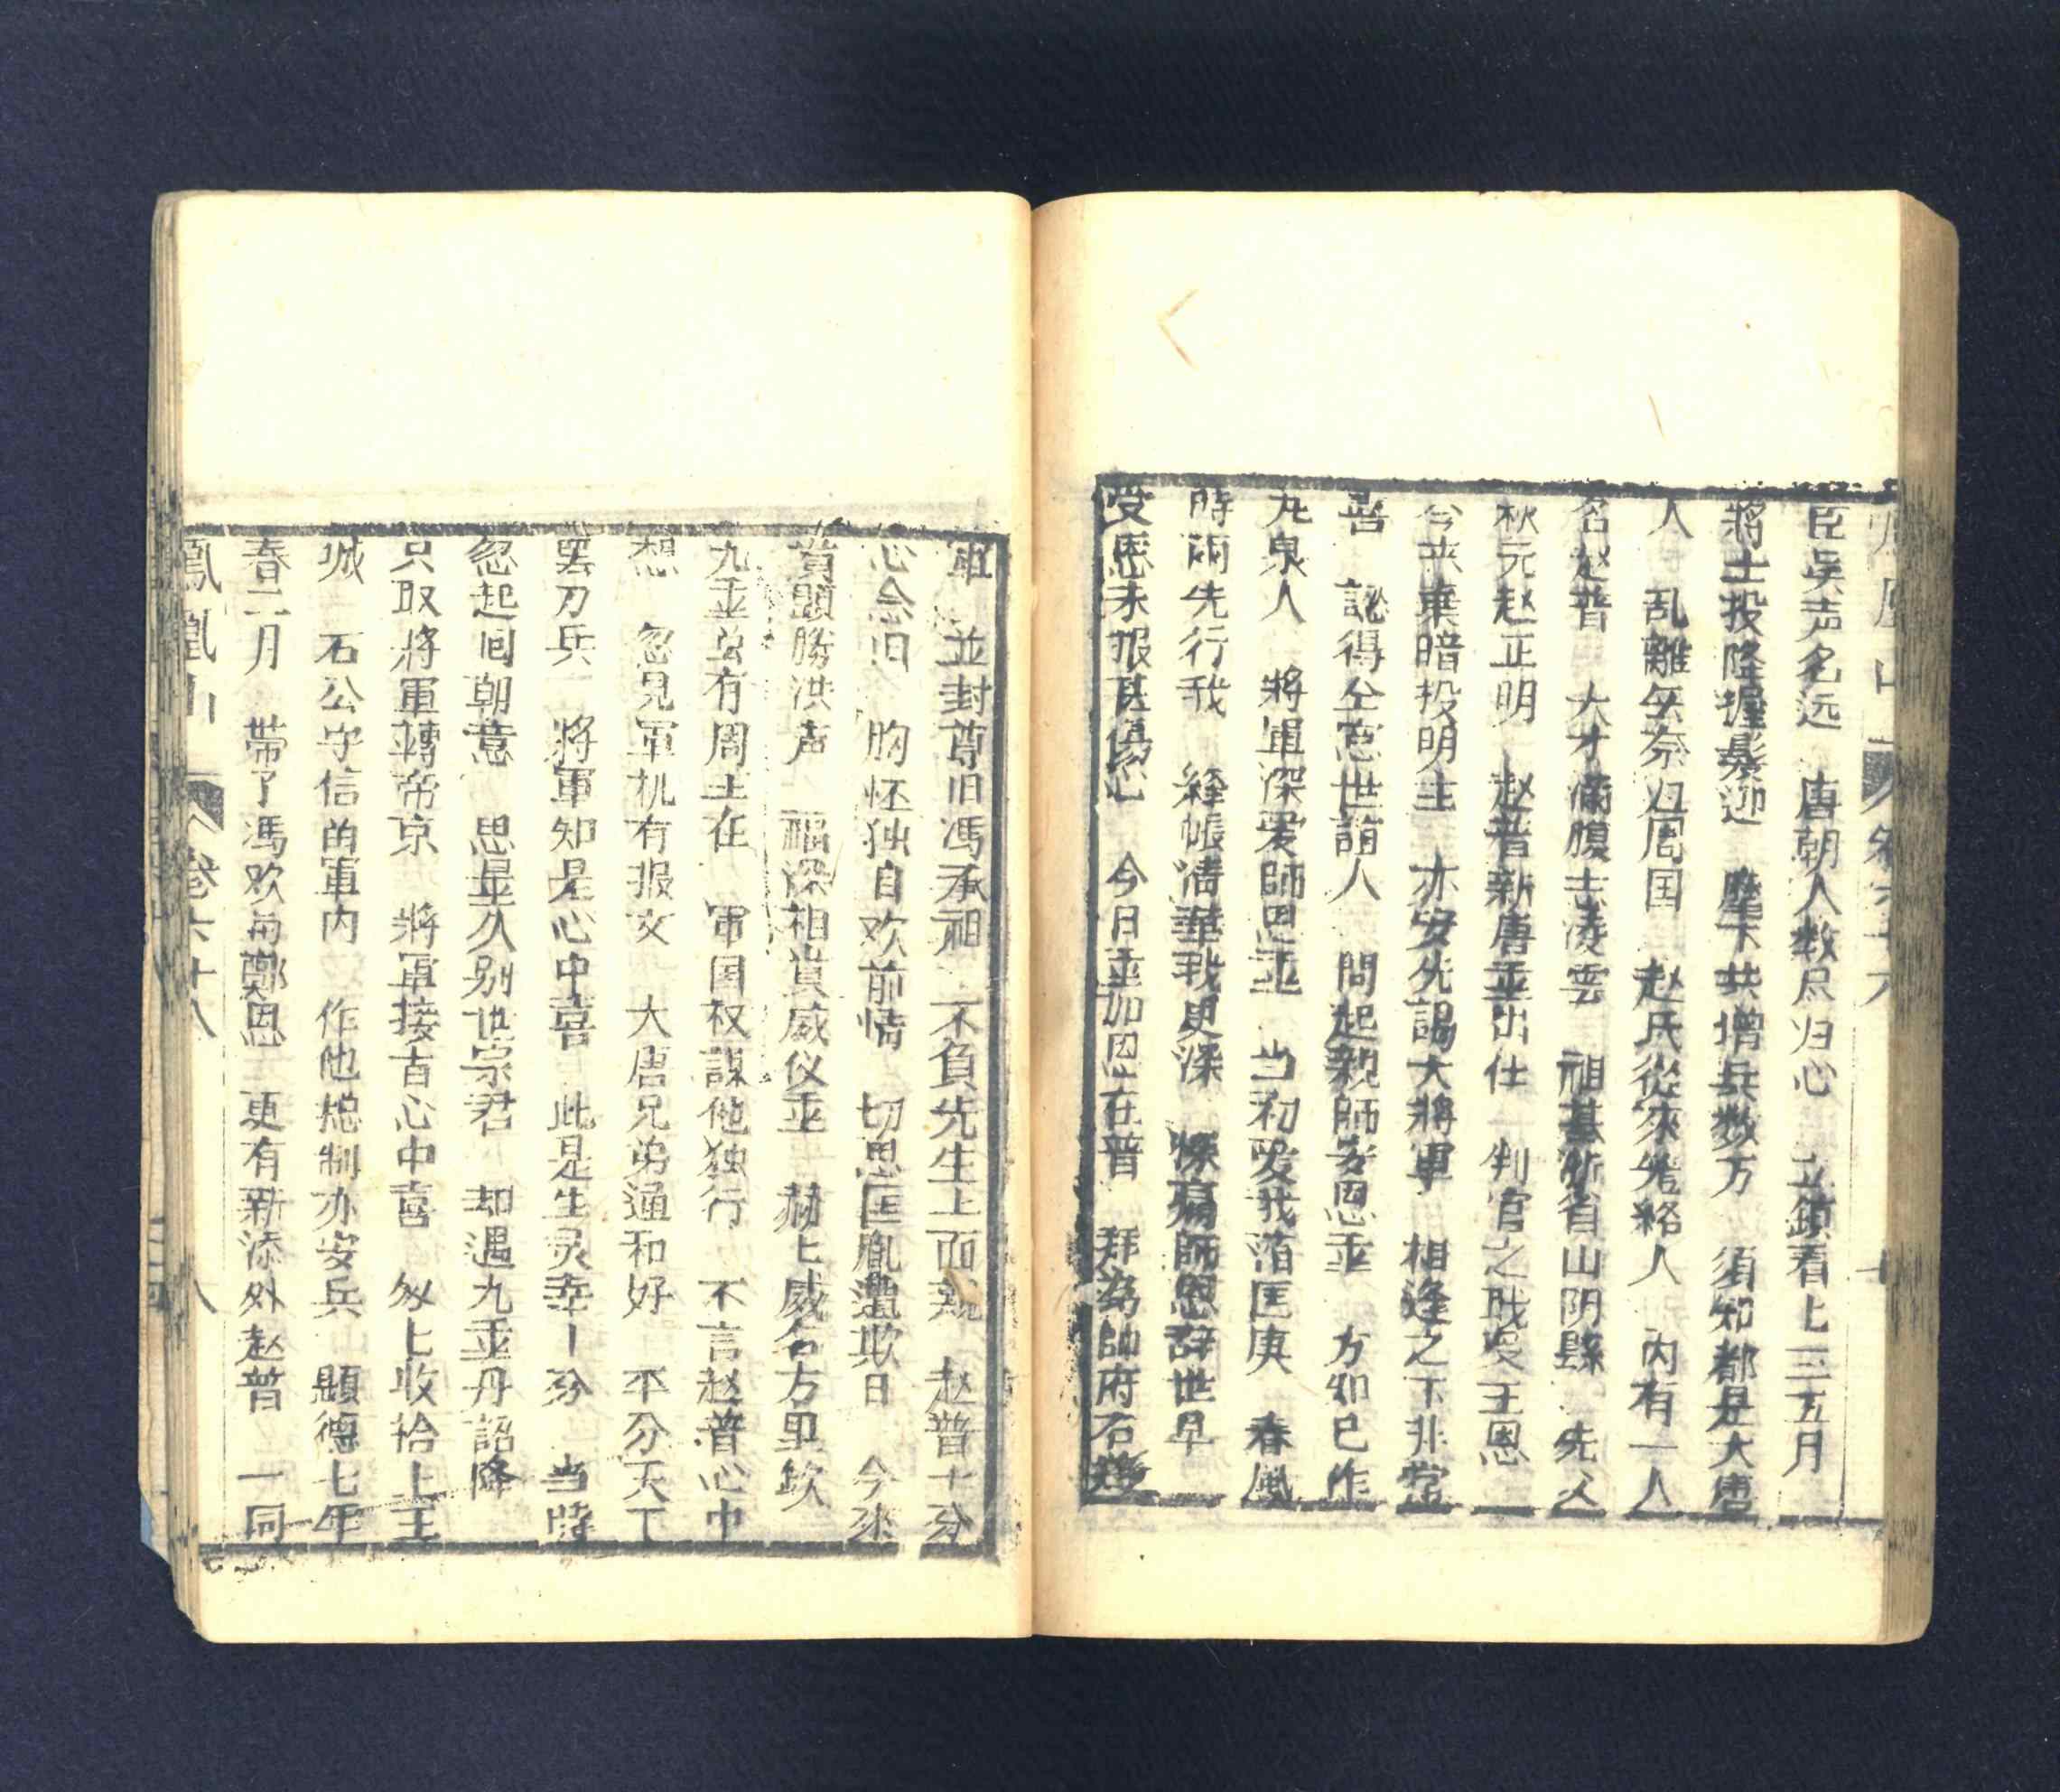 臣吳声名远 唐朝人数尽归心 立鎮看上三五月
將士投降握髮迎 麾下共增兵数万 須知都是大唐
人 乱離無奈归周国 赵氏從來 人 內有一人
名赵普 大才滿腹志凌雲 祖基浙省山阴縣 先人
秋元赵正明 赵普新唐 出仕 判官之 王恩
今來棄暗投明主 亦安先謁大將軍 相逢之下非常
喜 認得 世誼人 問起親師 恩 方知已作
九泉人 將軍深爱師恩 当初爱我 匡 春風
時雨先行我 絳帳 我更深 慘痛師恩辞世早
受恩未报甚傷心 今日 加恩在普 拜為帥府右
軍 並封尊旧馮承祖 不負先生上面親 赵普十分
心念旧 胸怀独自欢前情 切思匡胤 欺日 今來
貴顕勝洪声 福深相貴威仪 赫上威名方里欽
九重 有周主在 军国权謀他独行 不言赵普心中
想 忽見軍机有报文 大唐兄弟通和好 平分天下
罢刀兵 將軍知是心中喜 此是生灵幸十分 当時
忽起回朝意 思量久别世宗君 却遇九重丹詔降
只取將軍轉帝京 將軍接古心中喜 匆上收拾上王
城 石公守信留軍內 作他 制亦安兵 顕德七年
春二月 带了馮欢与鄭恩 更有新添外赵普 一同
鳳凰山 卷六十八 八